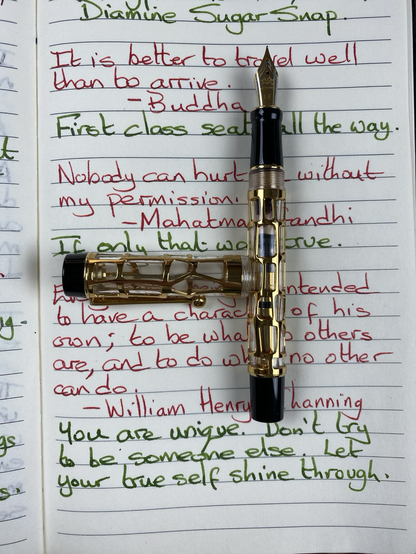 Diamine Sugar Snap.
It is better to travel well
than to arrive.
- Buddha
First class seat all the way.
Nobody can hurt without
my permission.
- Mahatma Gandhi
If only that was true.
intended
to have a character of his
own; to be what others
are, and to do what no other
can do.
- William Henry Channing
You are unique. Don't try
to be someone else. Let
your true self shine through.